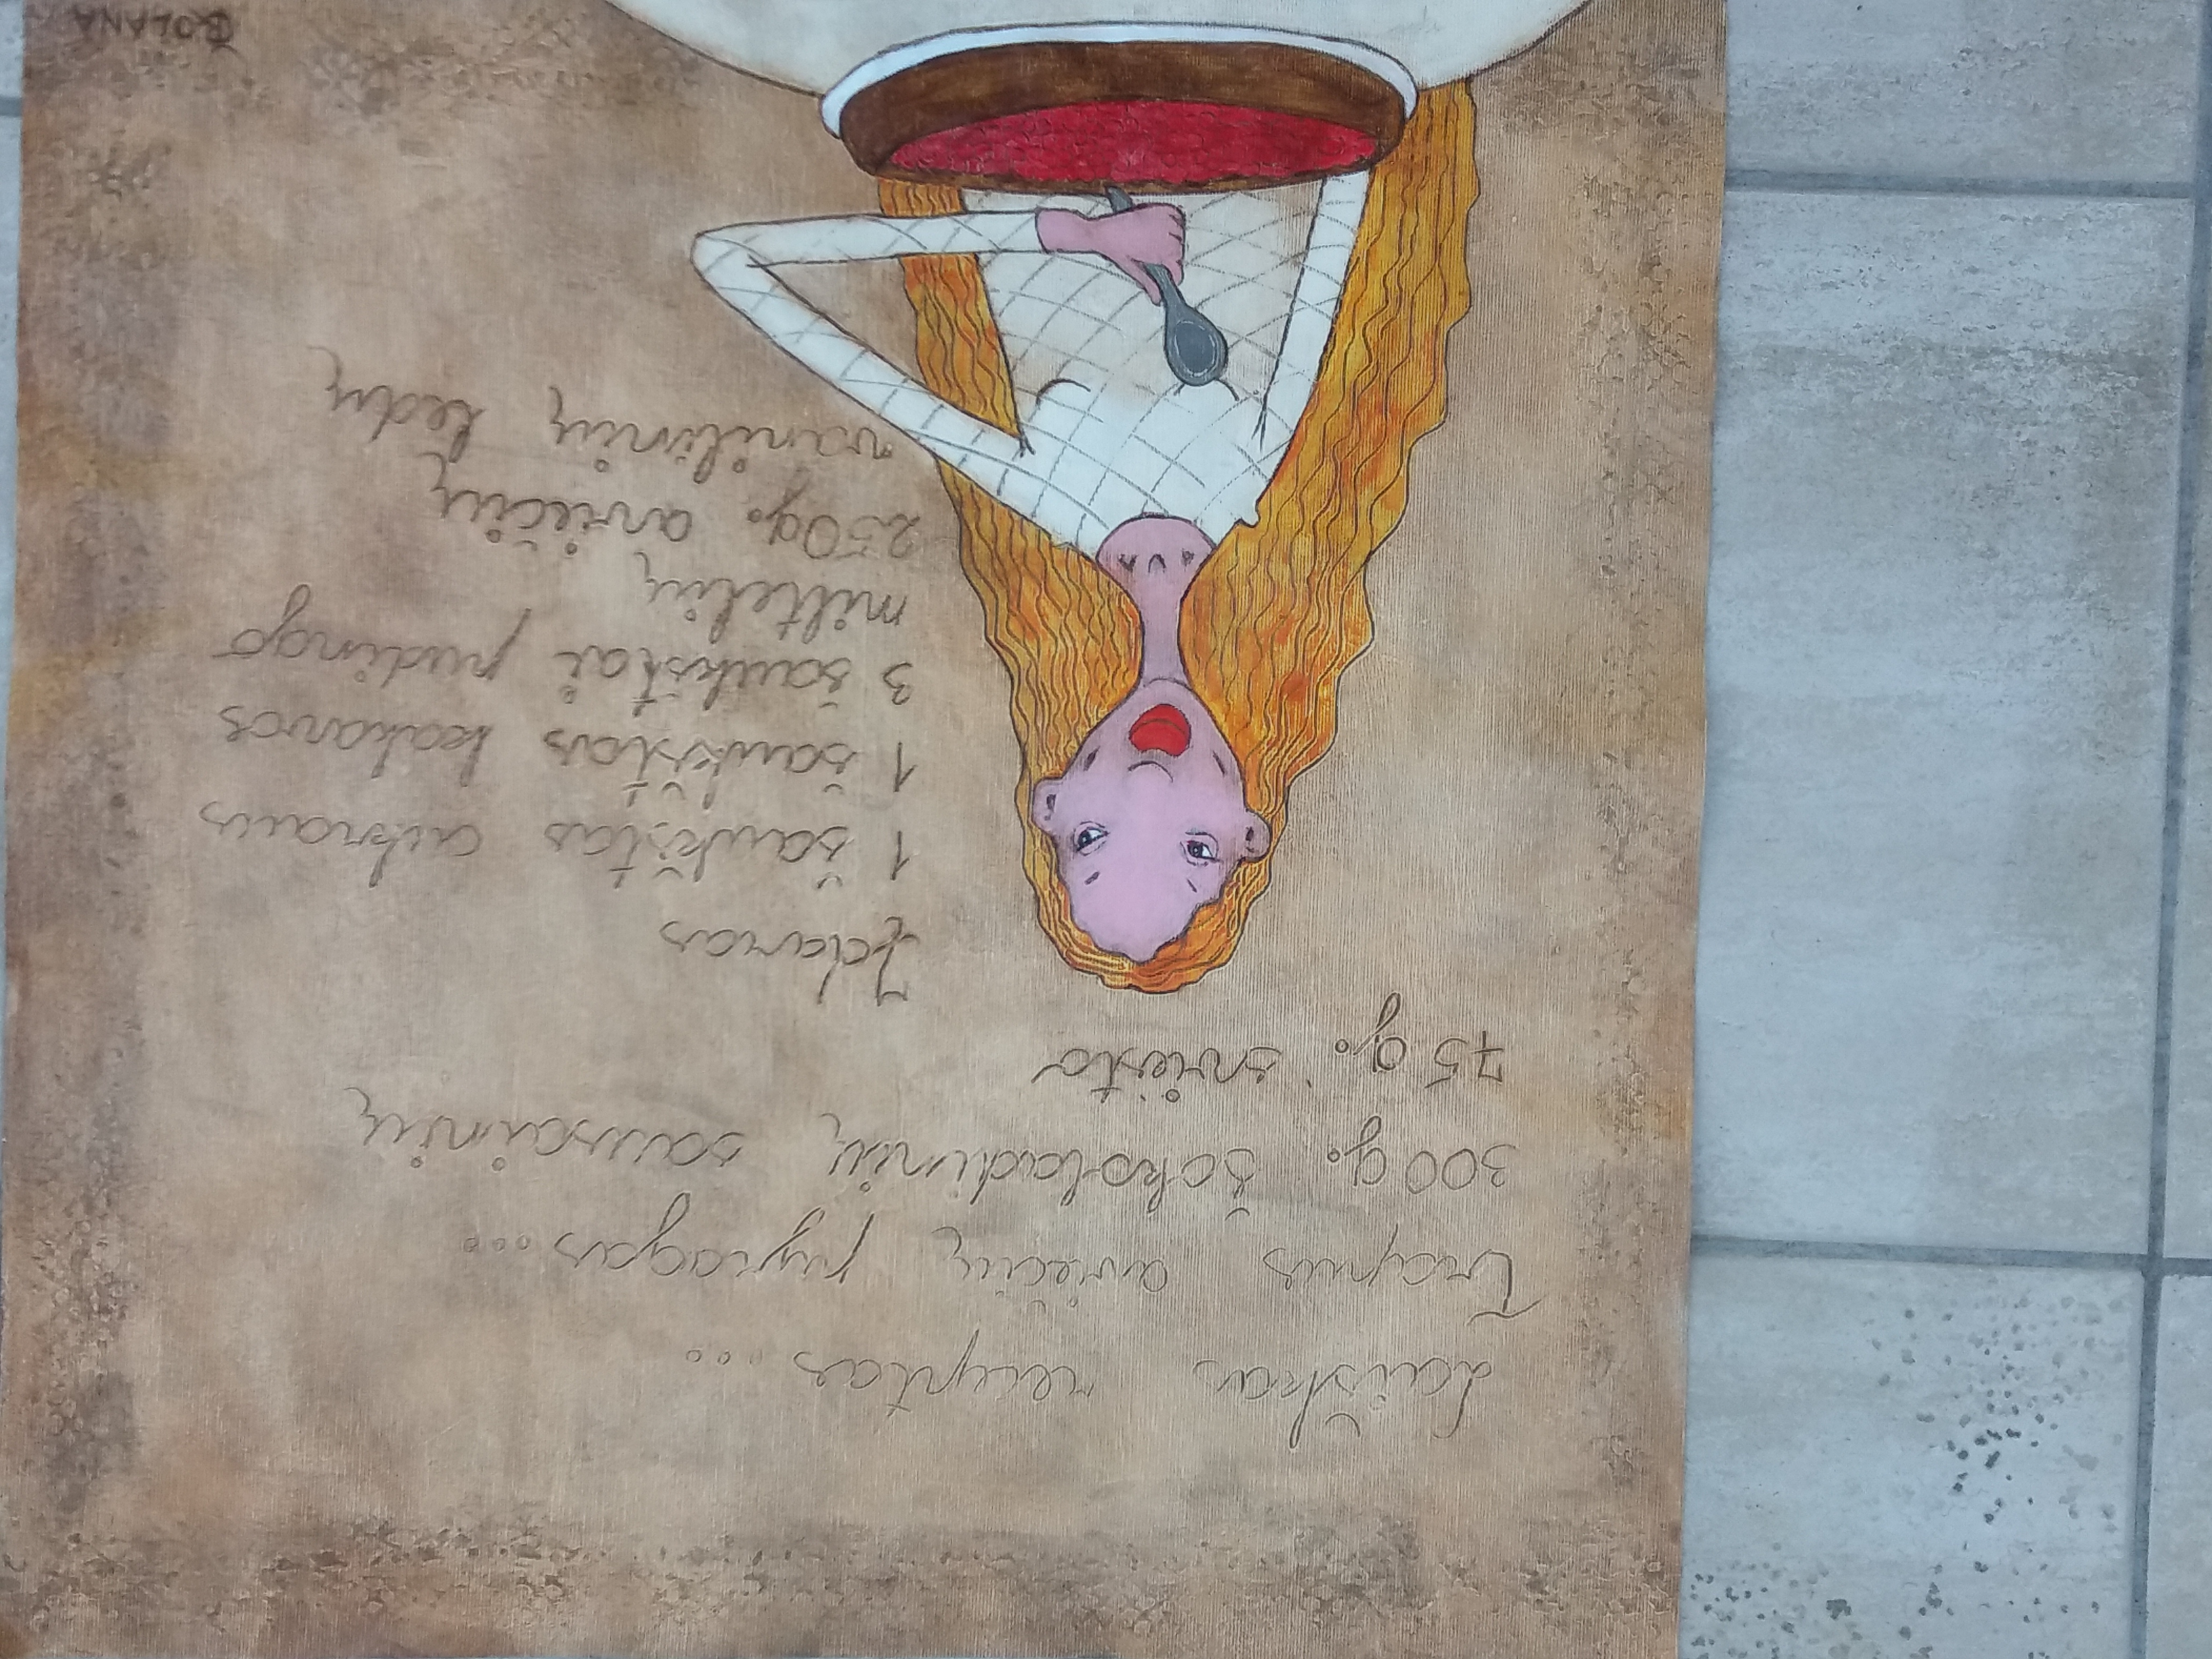 Laiškas receptas...
Trapus aviečių pyragas...
300 g. Šokoladinių sausainių
75 g. sviesto
Įdaras
1 šaukštas cukraus
1 šaukštas kakavos
3 šaukštai pudingo
miltelių
250g. aviečių
vanilinių ledų
BOLANA